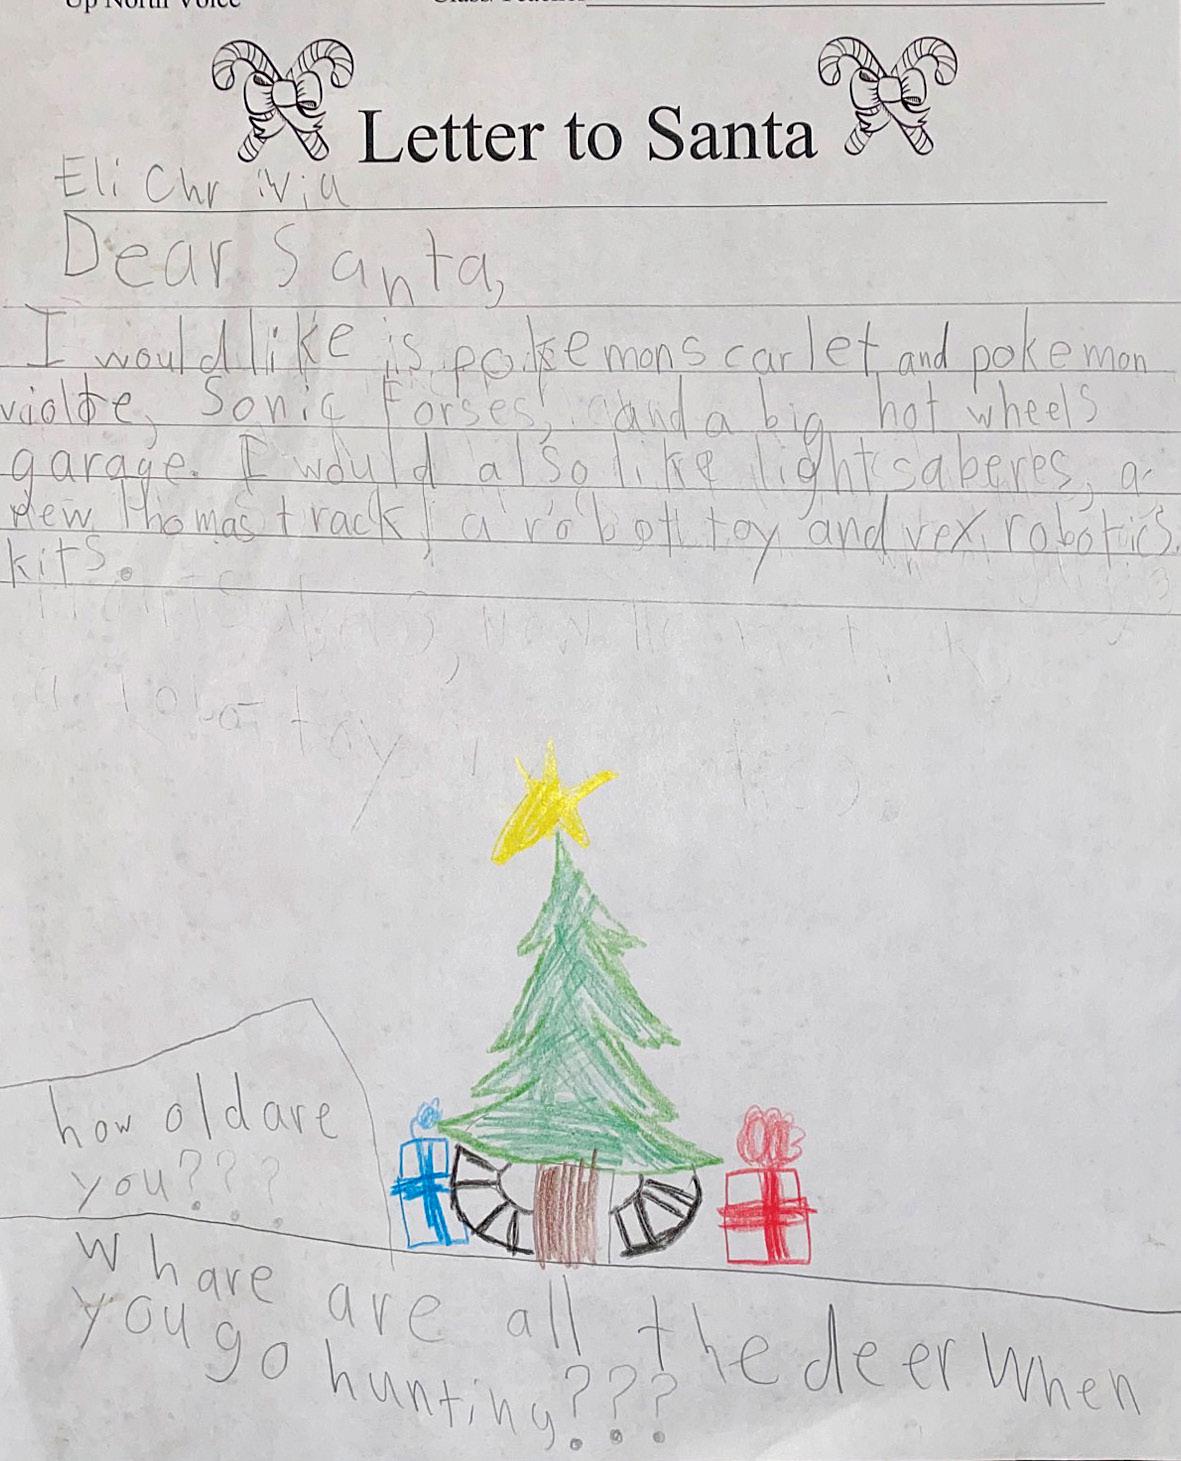 Up North Voice
Letter to Santa
Eli
Dear Santa,
I would like is pokemon scarlet and pokemon
violte, Sonic Forses, and a big hot wheels
garage. I would also like lightsaberes, a
new Thomas track, a robott toy and vex robotics
kits.
how old are
you???
Whare are all the deer when
you go hunting???